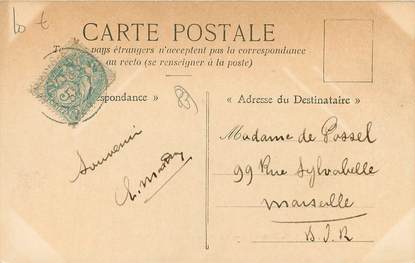 CARTE POSTALE
pays étrangers n'acceptent pas la correspondance
au recto (se renseigner à la poste)
respondance »
« Adresse du Destinataire »
Souvenir
Madame de Possel
99 Rue Sylvabelle
Marseille